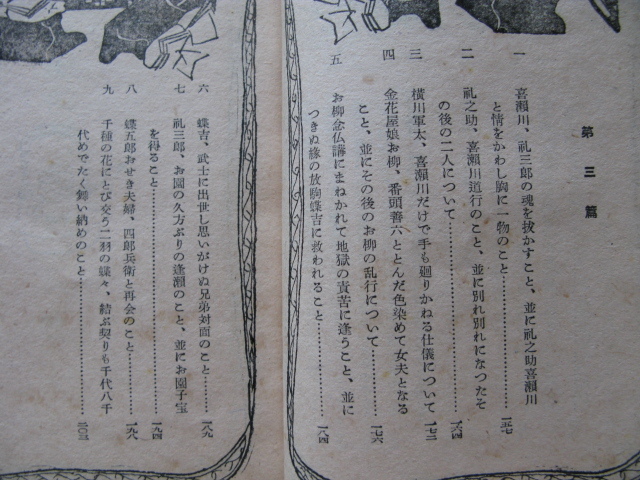 第三篇
一 喜瀬川、礼三郎の魂を抜かすこと、並に礼之助喜瀬川
と情をかわし胸に一物のこと…………一五七
二 礼之助、喜瀬川道行のこと、並に別れ別れになつたそ
の後の二人について…………一六四
三 横川軍太、喜瀬川だけで手も廻りかねる仕儀について 一七二
四 金花屋娘お柳、番頭善六ととんだ色染めて女夫となる
こと、並にその後のお柳の乱行について…………一七六
五 お柳念仏講にまねかれて地獄の責苦に逢うこと、並に
つきぬ縁の放駒蝶吉に救われること…………一八四
六 蝶吉、武士に出世し思いがけぬ兄弟対面のこと…………一八九
七 礼三郎、お園の久方ぶりの逢瀬のこと、並にお園子宝
を得ること…………一九四
八 蝶五郎おせき夫婦、四郎兵衛と再会のこと…………一九八
九 千種の花にとび交う二羽の蝶々、結ぶ契りも千代八千
代めでたく舞い納めのこと…………二〇三